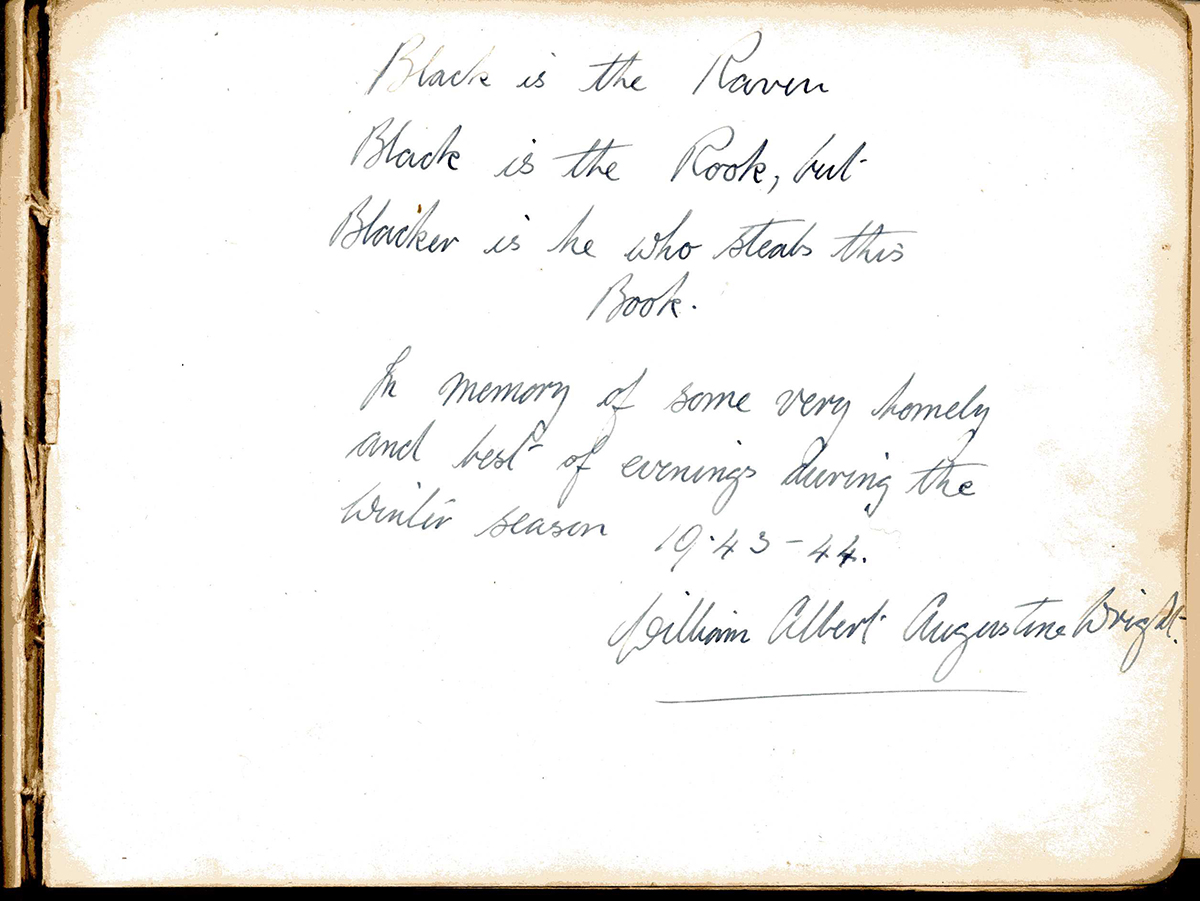 Black is the Raven
Black is the Rook, but
Blacker is he who steals this
Book.
In memory of some very homely
and best of evenings during the
Winter season 19.43-44.
William Albert Augustine Wright.